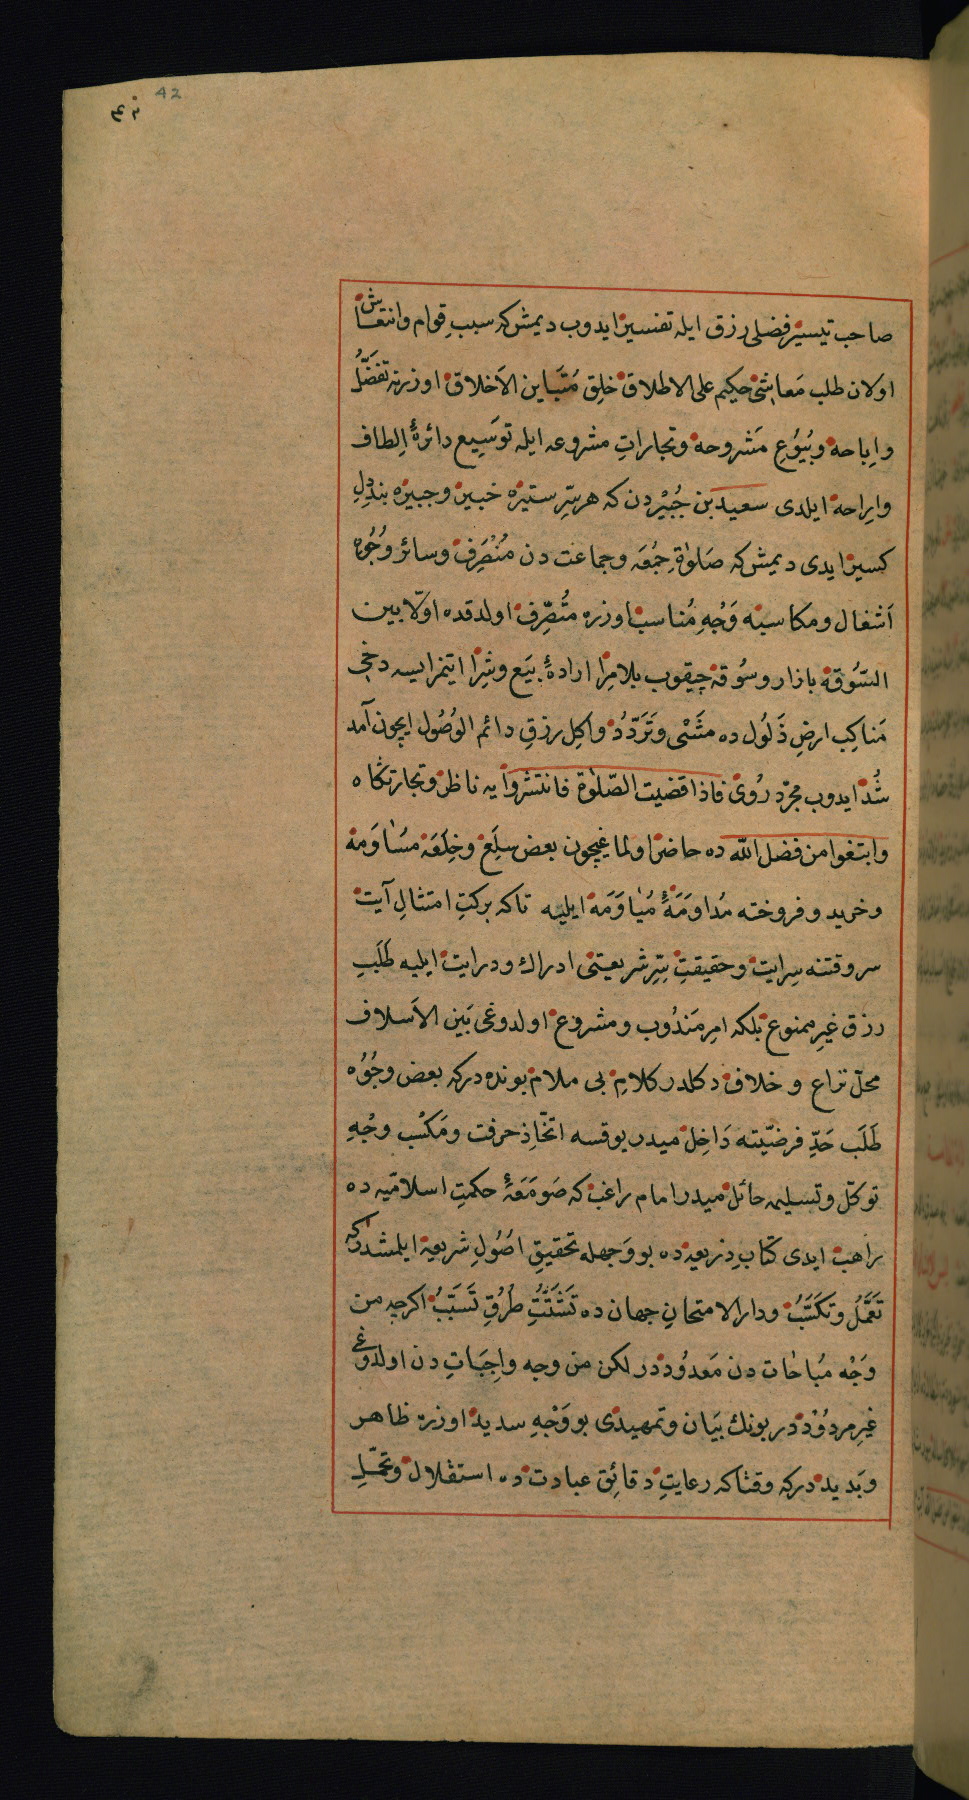 42
صاحب تيسير فضلی رزق ايله تفسير ايدوب ديمش كه سببِ قِوام وانتعاش
اولان طلب مَعاشی حكيم علی الاطلاق خلِق مُتَباين الاَخلاق اوزرنه تفَضُّل
واِباحه وبُيُوعِ مَشروحه وتجاراتِ مشروعه ايله توسَيِع دائرۀ اِلطاف
واِراحه ايلدی سعيد بن جُبَيْردن كه هر سِرِّ ستيره خبير وجبيره بندلِ
كسير ايدی ديمش كه صَلوٰةِ جُمعَه وجماعت دن مُنْصَرِف وسائر وُجُوهِ
اَشغال ومكاسبنه وَجْهِ مُناسب اوزره مُتَصَرِّف اولدقده اوّلا بين
السُّوقه بازار وسُوقه چيقوب بلامِرا ارادۀ بَيع وشِرا ايتمز ايسه دخی
مَناكِب ارضِ ذَلُول ده مَشْی وتَرَدُّد واكلِ رزقِ دائم الوُصُول ايچون آمد
شُد ايدوب مجرّد رُوی فاذا قضيت الصّلوٰة فانتشروا يه ناظر وتجارتكاه
وابتغوا من فضل الله ده حاضر اولماغيچون بعض سِلَع وخِلَعَه مُسَاوَمه
وخريد وفروخته مُداوَمَۀ مُياوَمَه ايليه تاكه بركتِ امتثالِ آيت
سر وقتنه سِرايت وحقيقتِ سِرِّ شريعيتی ادراك ودرايت ايليه طَلَبِ
رزق غيرِ ممنوع بلكه امرِ مَندُوب ومشروع اولدوغی بَين الاَسلاف
محلّ نزاع وخلاف دكلدر كلامِ بی ملام بونده دركه بعض وجُوُه
طَلَب حَدِّ فرضيّتنه دَاخِل ميدر يوقسه اتّخاذِ حرفت ومَكسَب وجْهِ
توكّل وتسليمه حائل ميدر امام راغب كه صَومَعَۀ حكمتِ اسلاميّه ده
راهب ايدی كتابِ ذريعه ده بو وَجهله تحقيقِ اصُولِ شريعه ايلمشدركه
تَعَمُّل وتكَسُّب ودار الامتحانِ جهان ده تَشَبُّثِ طُرُقِ تَسَبُّب اكرچه من
وَجْه مُباحٰات دن مَعدُوددر لكن من وجه واجِبَات دن اولدوغی
غيرِ مردُوددر بونك بَيان وتمهيدی بو وَجْهِ سديد اوزره ظاهر
وبَديددركه وقتاكه رعايتِ دقائِق عبادت ده استقلال وتحمّلِ